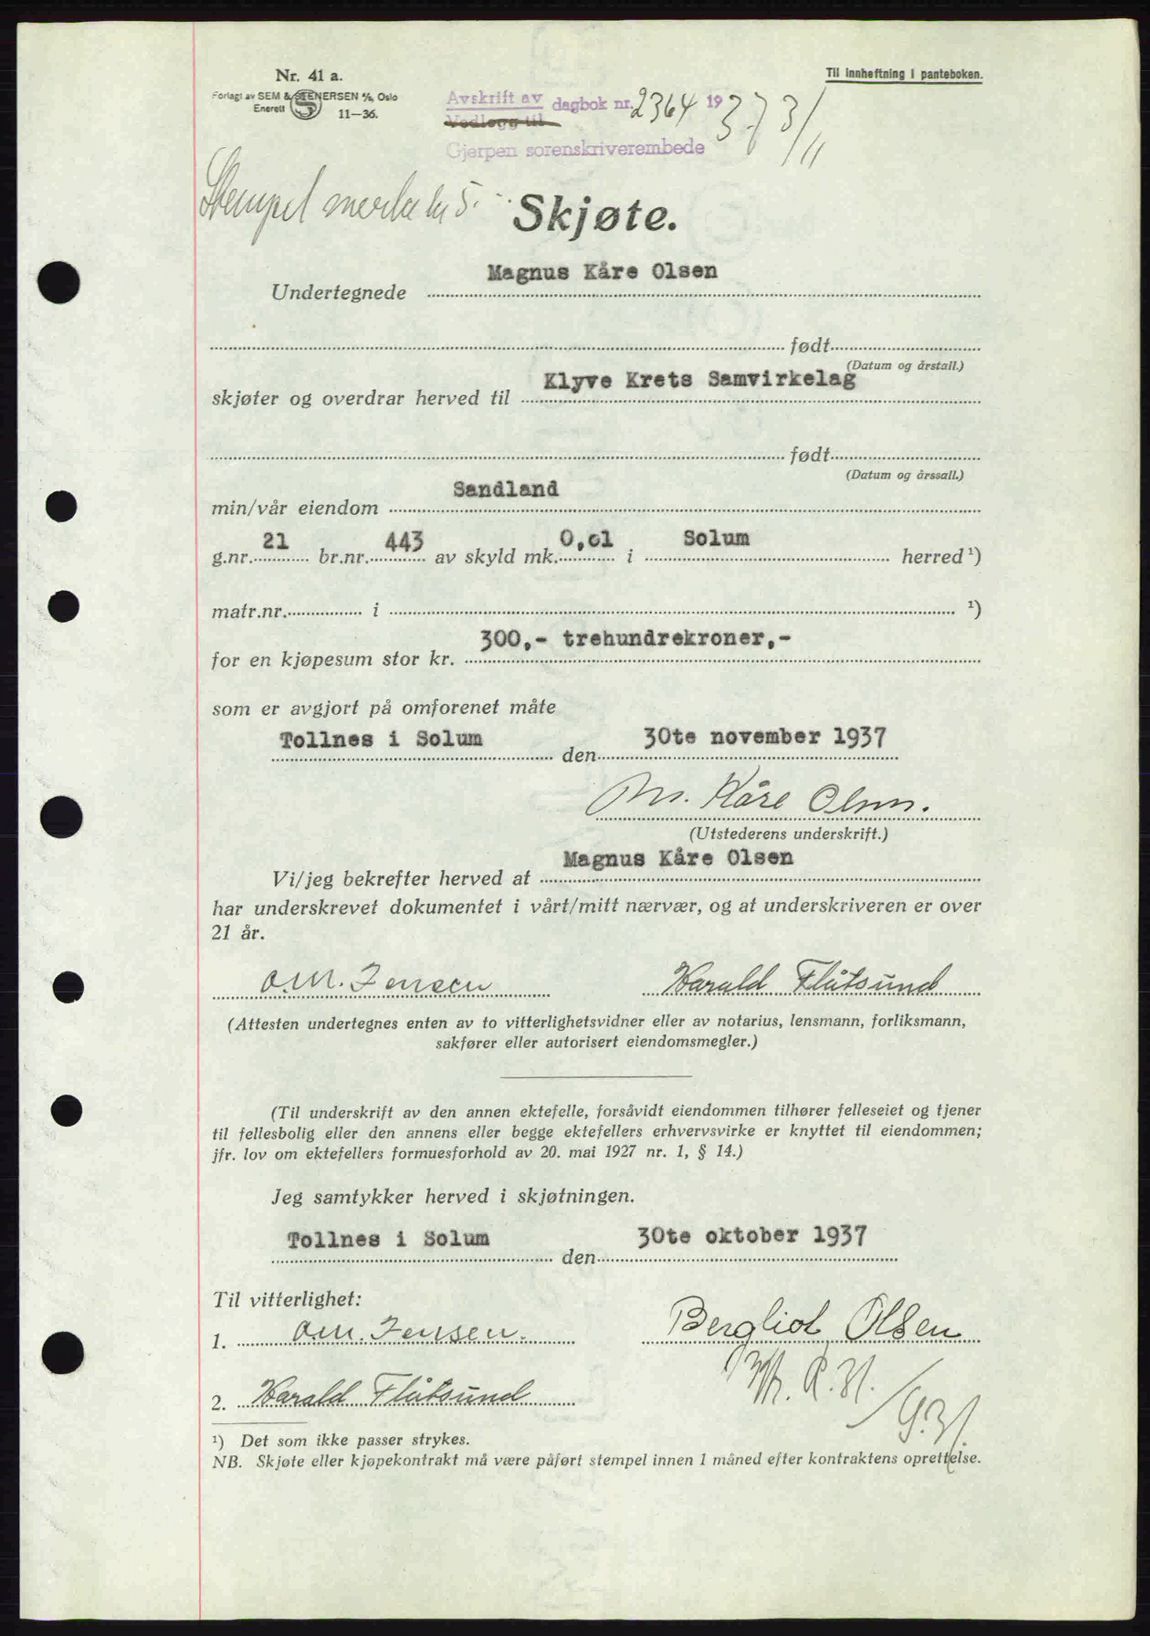 Nr. 41 a.
Til innheftning i panteboken.
Forlagt av SEM & STENERSEN A/S, Oslo
Enerett
11—36.
Avskrift av
Vedlegg til
dagbok nr. 2364 1937 3/11
Gjerpen sorenskriverembede
Stempelmerke kr 5.--
Skjøte.
Magnus Kåre Olsen
Undertegnede
født
(Datum og årstall.)
Klyve Krets Samvirkelag
skjøter og overdrar herved til
født
(Datum og årssall.)
Sandland
min/vår eiendom
g.nr. 21 br.nr. 443 av skyld mk. 0,01 i Solum herred ¹)
matr.nr. i ¹)
300,- trehundrekroner,-
for en kjøpesum stor kr.
som er avgjort på omforenet måte
Tollnes i Solum den 30te november 1937
M. Kåre Olsen.
(Utstederens underskrift.)
Magnus Kåre Olsen
Vi/jeg bekrefter herved at
har underskrevet dokumentet i vårt/mitt nærvær, og at underskriveren er over
21 år.
O.M. Jensen Harald Flåtsund
(Attesten undertegnes enten av to vitterlighetsvidner eller av notarius, lensmann, forliksmann,
sakfører eller autorisert eiendomsmegler.)
(Til underskrift av den annen ektefelle, forsåvidt eiendommen tilhører felleseiet og tjener
til fellesbolig eller den annens eller begge ektefellers erhvervsvirke er knyttet til eiendommen;
jfr. lov om ektefellers formuesforhold av 20. mai 1927 nr. 1, § 14.)
Jeg samtykker herved i skjøtningen.
Tollnes i Solum den 30te oktober 1937
Til vitterlighet:
1. O.M. Jensen. Bergliot Olsen
2. Harald Flåtsund
¹) Det som ikke passer strykes.
NB. Skjøte eller kjøpekontrakt må være påført stempel innen 1 måned efter kontraktens oprettelse.